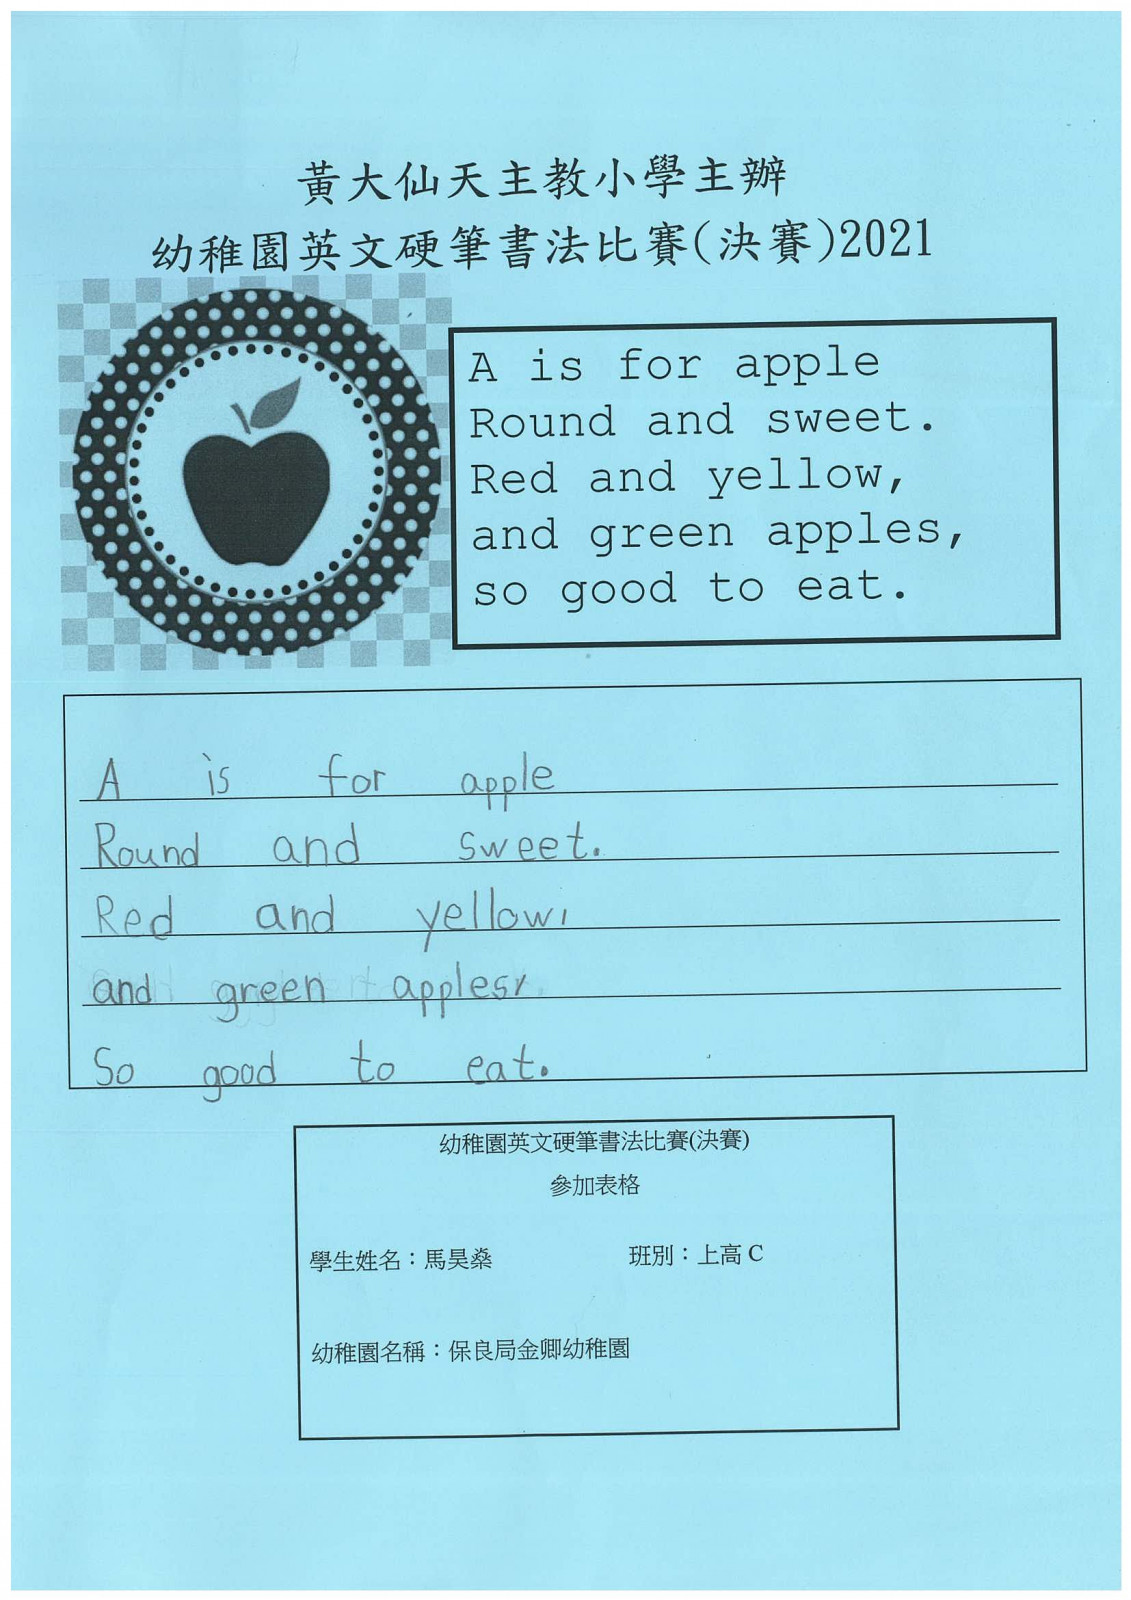 黃大仙天主教小學主辦
幼稚園英文硬筆書法比賽(決賽)2021
A is for apple
Round and sweet.
Red and yellow,
and green apples,
so good to eat.
A is for apple
Round and sweet.
Red and yellow,
and green apples,
So good to eat.
幼稚園英文硬筆書法比賽(決賽)
參加表格
學生姓名：馬昊燊 班別：上高 C
幼稚園名稱：保良局金卿幼稚園